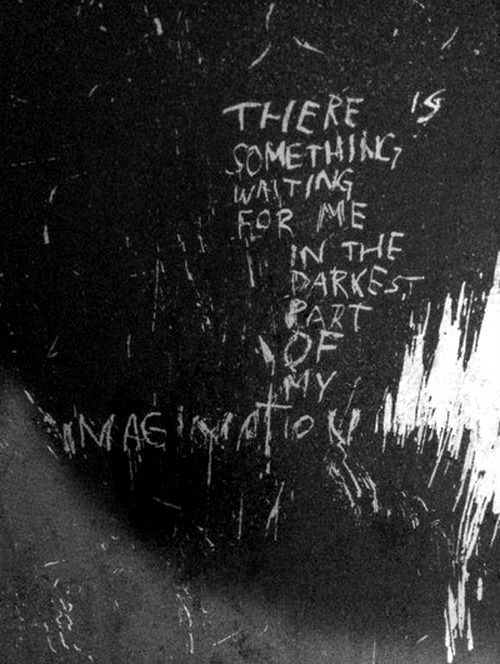 THERE IS
SOMETHING
WAITING
FOR ME
IN THE
DARKEST
PART
OF
MY
IMAGINATION